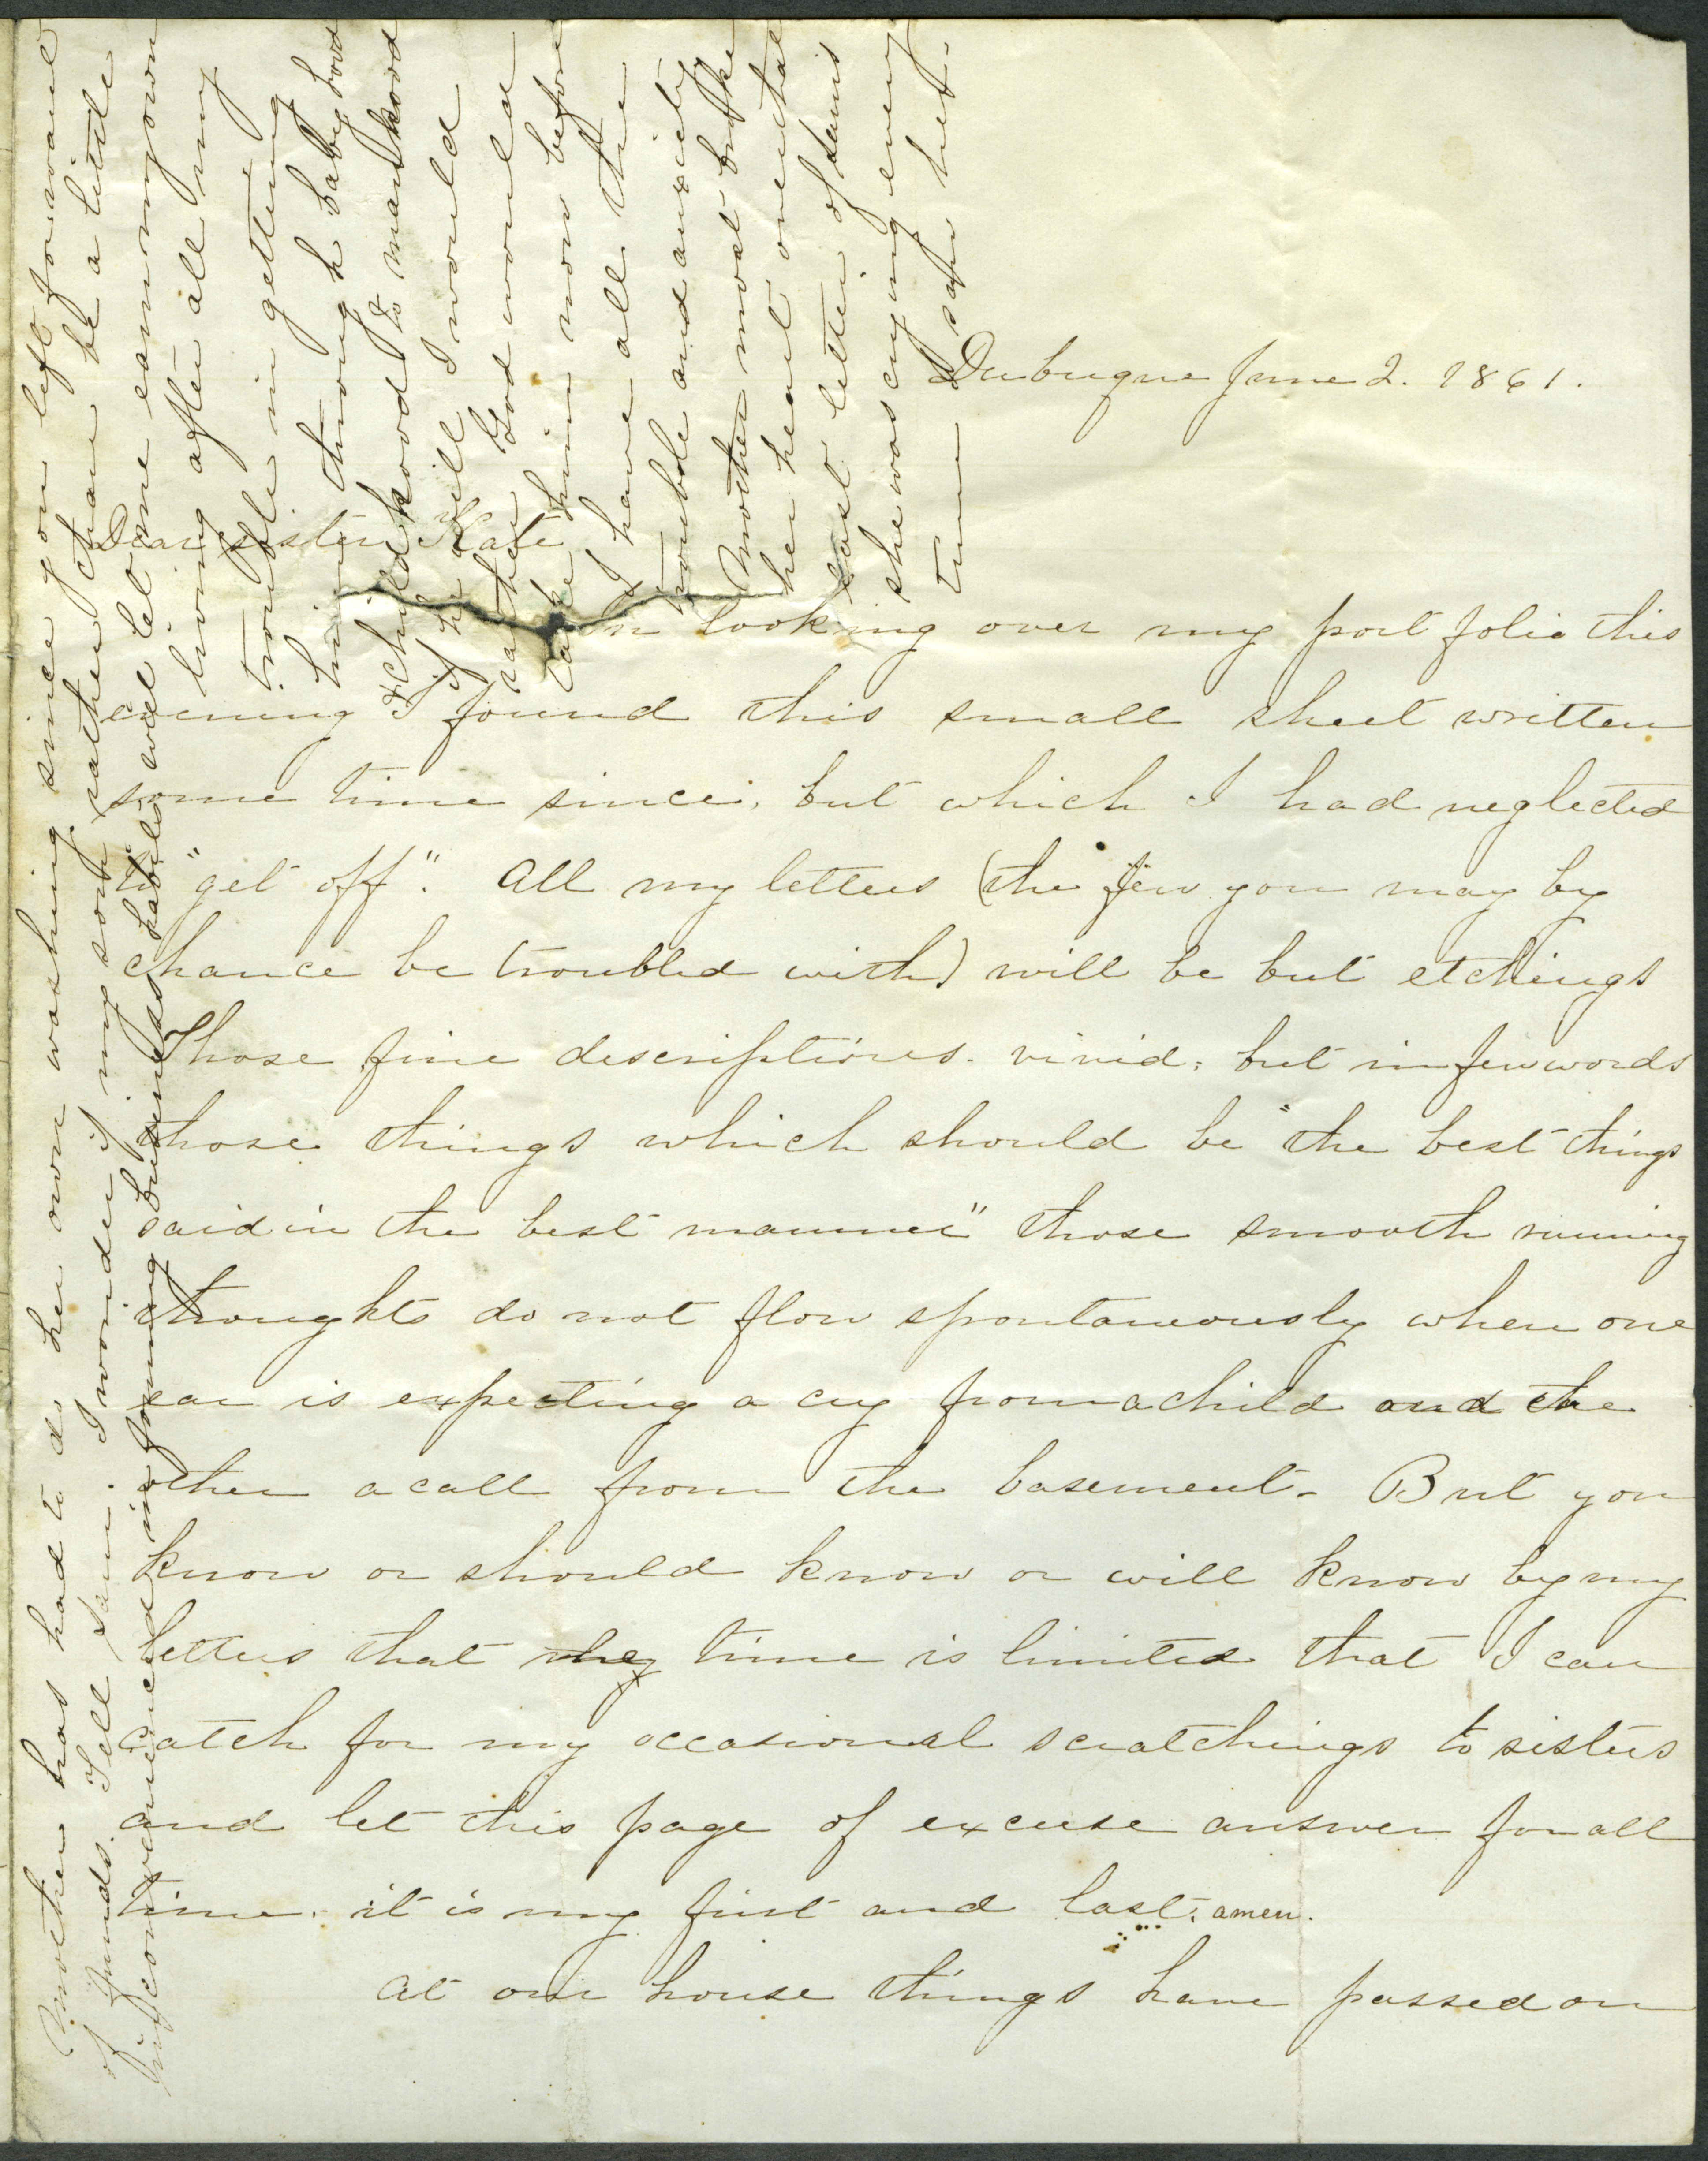 Dubuque June 2. 1861.
Dear sister Kate
In looking over my port folio this
evening I found this small sheet written
some time since, but which I had neglected
to "get off". All my letters (the few you may by
chance be troubled with) will be but etchings
Those fine descriptions. vivid, but in few words
those things which should be "the best things
said in the best manner" those smooth running
thoughts do not flow spontaneously when one
ear is expecting a cry from a child and the
other a call from the basement - But you
know or should know or will know by my
letters that my time is limited that I can
catch for my occasional scratchings to sisters
and let this page of excuse answer for all
time. it is my first and last. amen.
At our house things have passed on
Mother has had to do her own washing since you left for want
of funds. Tell Sam. I wonder if my son rather than be a little
inconvenienced in forming business habits will let me earn my own
living after all my
trouble in getting
him through babyhood
& childhood to manhood
if he will I would
rather God would
take him now before
I have all the
trouble and anxiety
Mother most broke
her heart over that
last letter of Sam's
she was crying every
time I saw her -